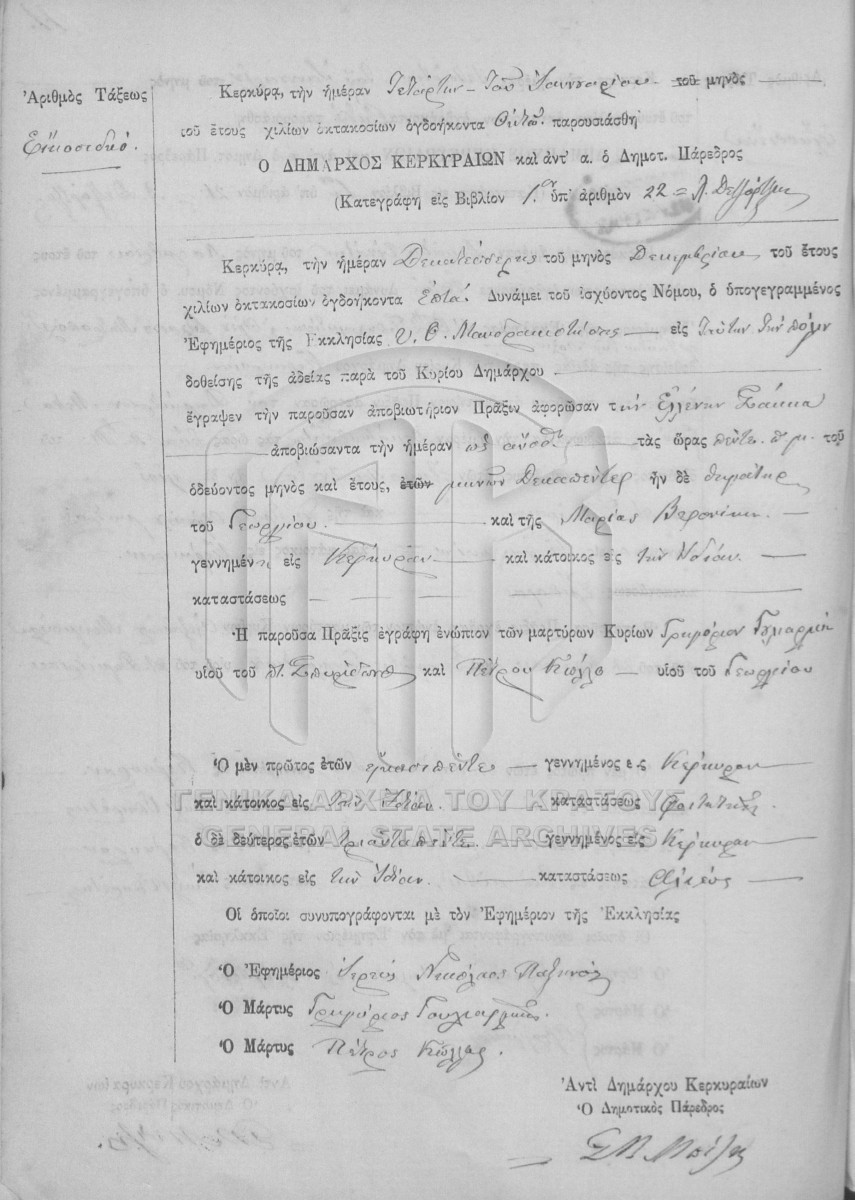 Ἀριθμὸς Τάξεως
Εἴκοσιδυό.
Κερκύρᾳ, τὴν ἡμέραν Τετάρτην - τοῦ Ἰαννουαρίου τοῦ μηνὸς
τοῦ ἔτους χιλίων ὀκτακοσίων ὀγδοήκοντα Ὀκτώ παρουσιάσθη
Ὁ ΔΗΜΑΡΧΟΣ ΚΕΡΚΥΡΑΙΩΝ καὶ ἀντ' α. ὁ Δημοτ. Πάρεδρος
(Κατεγράφη εἰς Βιβλίον 1.ον ὑπ' ἀριθμὸν 22 =
Κερκύρᾳ, τὴν ἡμέραν Δεκατέσσερης τοῦ μηνὸς Δεκεμβρίου τοῦ ἔτους
χιλίων ὀκτακοσίων ὀγδοήκοντα Ἑπτά. Δυνάμει τοῦ ἰσχύοντος Νόμου, ὁ ὑπογεγραμμένος
Ἐφημέριος τῆς Ἐκκλησίας Υ. Θ. Μανδρακιωτίσσης εἰς ταύτην τὴν πόλιν
δοθείσης τῆς ἀδείας παρὰ τοῦ Κυρίου Δημάρχου
ἔγραψεν τὴν παροῦσαν ἀποβιωτήριον Πρᾶξιν ἀφορῶσαν τὴν Ἑλλένην Σάκκα
ἀποβιώσαντα τὴν ἡμέραν ὡς ἄνωθ. τὰς ὥρας πέντε π. μ. τοῦ
ὁδεύοντος μηνὸς καὶ ἔτους, ἐτῶν μηνῶν Δεκαπέντε ἦν δὲ θυγάτηρ
τοῦ Γεωργίου καὶ τῆς Μαρίας Βερονίκη
γεννημένη εἰς Κέρκυραν καὶ κάτοικος εἰς τὴν Ἰδίαν
καταστάσεως
Ἡ παροῦσα Πρᾶξις ἐγράφη ἐνώπιον τῶν μαρτύρων Κυρίων Γρηγόριον Γουλιαρμή
υἱοῦ τοῦ Π. Σπυρίδωνος καὶ Πέτρου Κώλλα υἱοῦ τοῦ Γεωργίου
Ὁ μὲν πρῶτος ἐτῶν εἰκοσιπέντε γεννημένος εἰς Κέρκυραν
καὶ κάτοικος εἰς τὴν Ἰδίαν καταστάσεως φοιτητής
ὁ δὲ δεύτερος ἐτῶν τριανταπέντε γεννημένος εἰς Κέρκυραν
καὶ κάτοικος εἰς τὴν Ἰδίαν καταστάσεως ἁλιεύς
Οἱ ὁποῖοι συνυπογράφονται μὲ τὸν Ἐφημέριον τῆς Ἐκκλησίας
Ὁ Ἐφημέριος Ἱερεύς Νικόλαος Παξινός
Ὁ Μάρτυς Γρηγόριος Γουλιαρμής
Ὁ Μάρτυς Πέτρος Κώλλας.
Ἀντὶ Δημάρχου Κερκυραίων
Ὁ Δημοτικὸς Πάρεδρος
ΓΕΝΙΚΑ ΑΡΧΕΙΑ ΤΟΥ ΚΡΑΤΟΥΣ
GENERAL STATE ARCHIVES